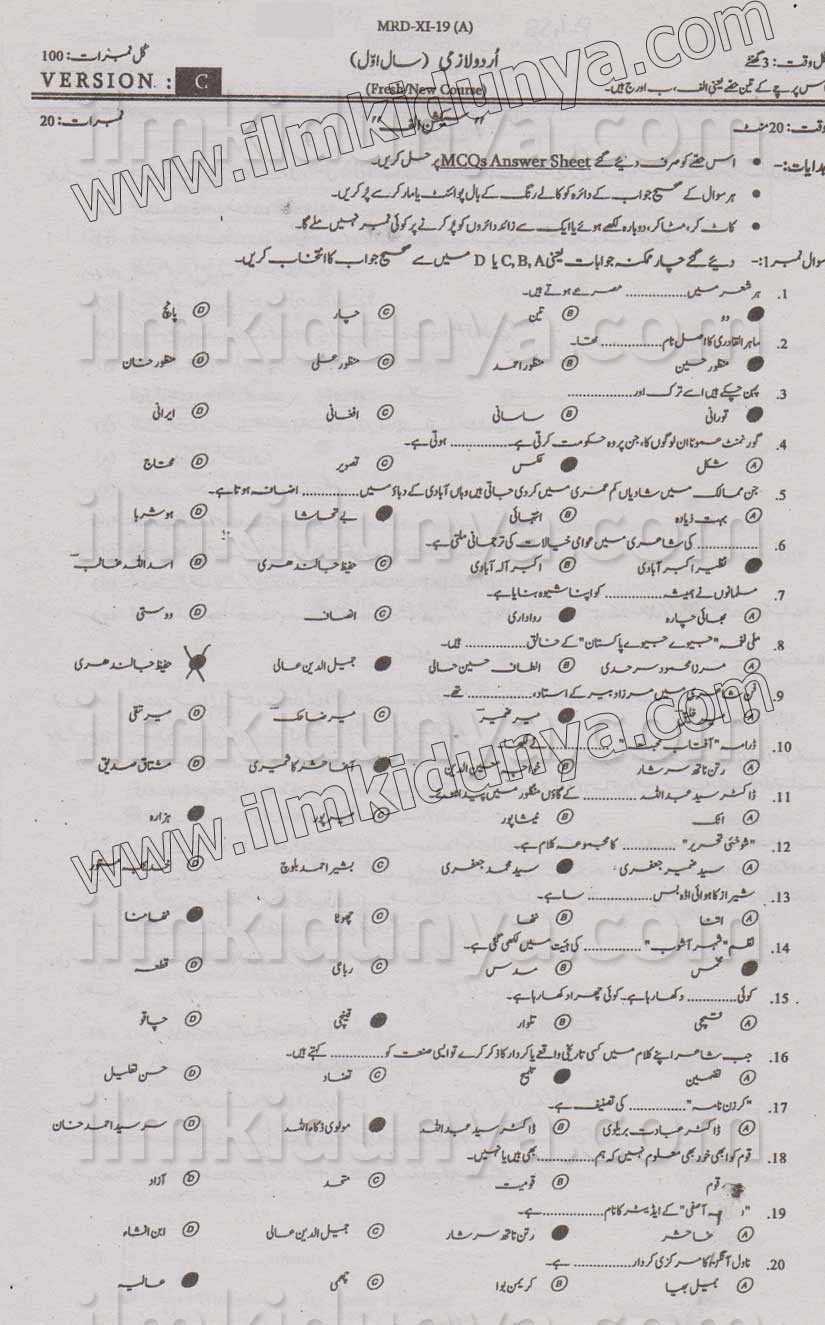 MRD-XI-19 (A)
کل وقت: 3 گھنٹے اُردو لازمی (سال اوّل) کل نمبرات: 100
(Fresh/New Course) VERSION : C
اس پرچے کے تین حصے یعنی الف، ب اور ج ہیں۔
وقت: 20 منٹ "سیکشن الف" نمبرات: 20
ہدایات:- • اس حصے کو صرف دیئے گئے MCQs Answer Sheet پر حل کریں۔
• ہر سوال کے صحیح جواب کے دائرہ کو کالے رنگ کے بال پوائنٹ یا مارکر سے پُر کریں۔
• کاٹ کر، مٹا کر، دوبارہ لکھے ہوئے یا ایک سے زائد دائروں کو پُر کرنے پر کوئی نمبر نہیں ملے گا۔
سوال نمبر 1:- دیئے گئے چار ممکنہ جوابات یعنی C, B, A یا D میں سے صحیح جواب کا انتخاب کریں۔
1. ہر شعر میں .............. مصرعے ہوتے ہیں۔
دو B تین C چار D پانچ
2. ماہر القادری کا اصل نام .............. تھا۔
منظور حسین B منظور احمد C منظور علی D منظور خان
3. پہن چکے ہیں اے ترک اور ..............
تورانی B ساسانی C افغانی D ایرانی
4. گورنمنٹ عموماً ان لوگوں کا، جن پر وہ حکومت کرتی ہے .............. ہوتی ہے۔
A شکل عکس C تصویر D محتاج
5. جن ممالک میں شادیاں کم عمری میں کر دی جاتی ہیں وہاں آبادی کے دباؤ میں .............. اضافہ ہوتا ہے۔
A بہت زیادہ B انتہائی بے تحاشا D ہوشربا
6. .............. کی شاعری میں عوامی خیالات کی ترجمانی ملتی ہے۔
نظیر اکبر آبادی B اکبر الہ آبادی C حفیظ جالندھری D اسد اللہ غالب
7. مسلمانوں نے ہمیشہ .............. کو اپنا شیوہ بنایا ہے۔
A بھائی چارہ رواداری C انصاف D دوستی
8. ملی نغمہ "جیوے جیوے پاکستان" کے خالق .............. ہیں۔
A مرزا محمود سرحدی B الطاف حسین حالی جمیل الدین عالی حفیظ جالندھری
9. فن شاعری میں مرزا دبیر کے استاد .............. تھے۔
A میر خلیق میر ضمیر C میر ضاحک D میر تقی
10. ڈرامہ "آفتاب محبت" .............. نے لکھا
A رتن ناتھ سرشار B خواجہ معین الدین آغا حشر کاشمیری D مشتاق صدیقی
11. ڈاکٹر سید عبد اللہ .............. کے گاؤں منگلور میں پیدا ہوئے۔
A اٹک B نیشاپور C میر پور ہزارہ
12. "شوخئی تحریر" .............. کا مجموعہ کلام ہے۔
A سید ضمیر جعفری سید محمد جعفری C بشیر احمد بلوچ D
13. شیراز کا ہوائی اڈہ بس .............. سا ہے۔
A اتنا B ننھا C چھوٹا ننھا منا
14. نظم "شہر آشوب" .............. کی ہیت میں لکھی گئی ہے۔
مخمس B مسدس C رباعی D قطعہ
15. کوئی .............. دکھا رہا ہے۔ کوئی چھرا دکھا رہا ہے۔
A قمچی B تلوار قینچی D چاقو
16. جب شاعر اپنے کلام میں کسی تاریخی واقعے یا کردار کا ذکر کرے تو ایسی صنعت کو .............. کہتے ہیں۔
A تضمین تلمیح C تضاد D حسن تعلیل
17. "کرزن نامہ" .............. کی تصنیف ہے۔
A ڈاکٹر عبادت بریلوی B ڈاکٹر سید عبد اللہ مولوی ذکاء اللہ D سر سید احمد خان
18. قوم کو ابھی خود بھی معلوم نہیں کہ ہم .............. بھی ہیں یا نہیں۔
قوم B قومیت C متحد D آزاد
19. آصفی" کے ایڈیٹر کا نام .............. ہے۔
A حشر رتن ناتھ سرشار C جمیل الدین عالی D ابن انشاء
20. ناول آنگن کا مرکزی کردار .............. ہے۔
A جمیل بھیا B کریمن بوا C چھمی عالیہ
www.ilmkidunya.com
www.ilmkidunya.com
ilmkidunya.com
ilmkidunya.com
ilmkidunya.com
ilmkidunya.com
ilmkidunya.com
ilmkidunya.com
ilmkidunya.com